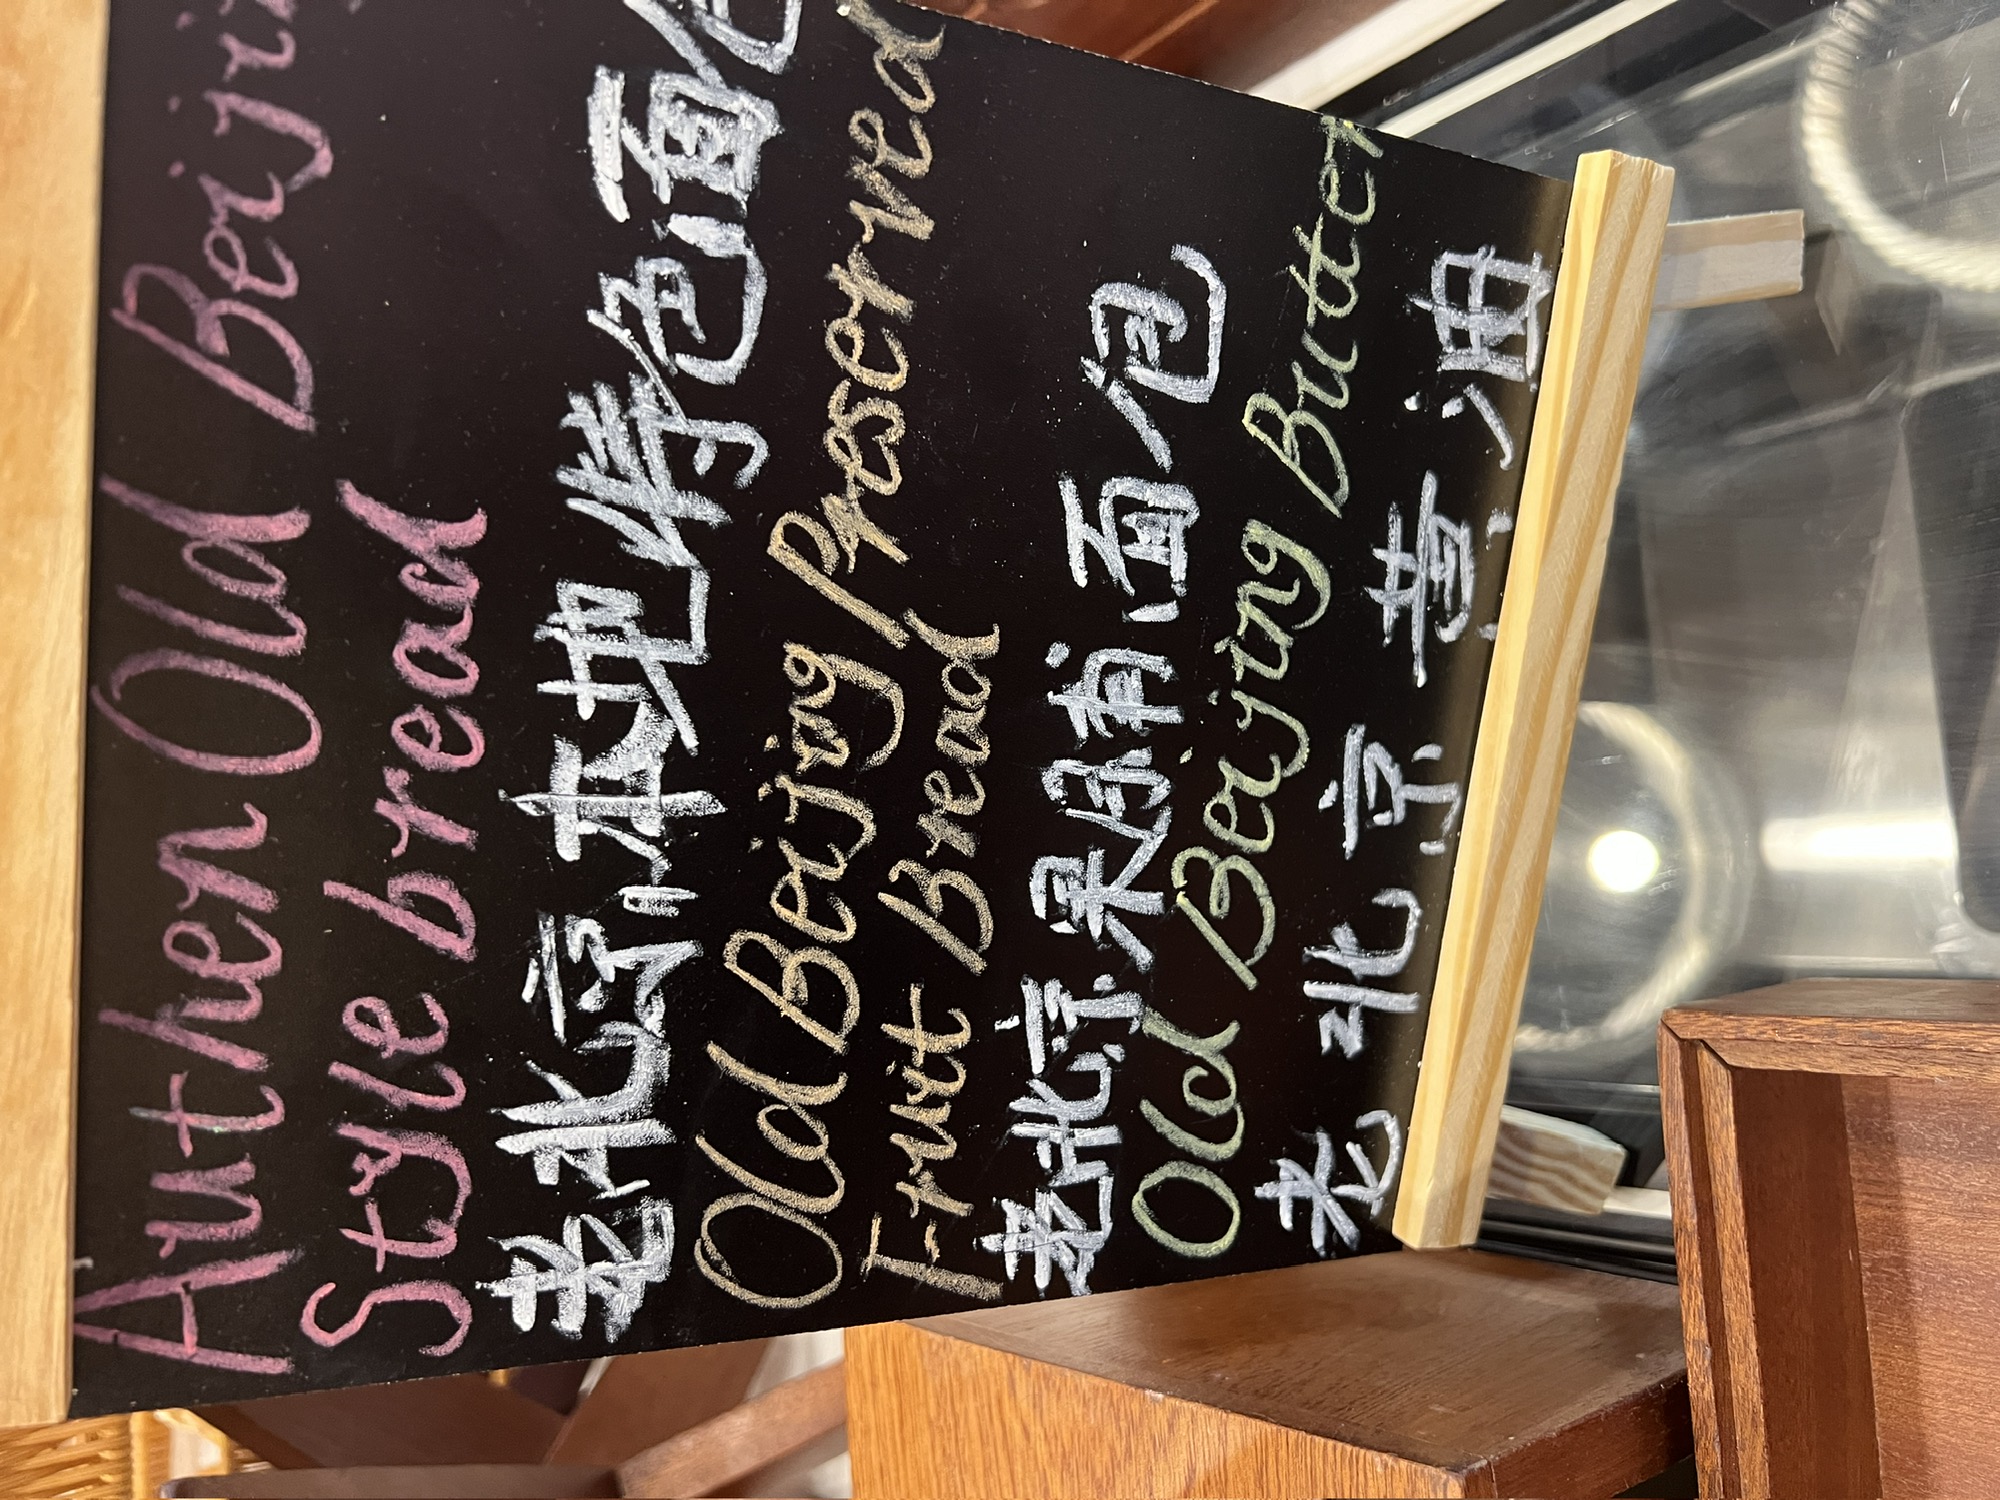 Authen Old Beijin
Style bread
老北京本地特色面包
Old Beijing Preserved
Fruit Bread
老北京果脯面包
Old Beijing Butter
老北京黄油